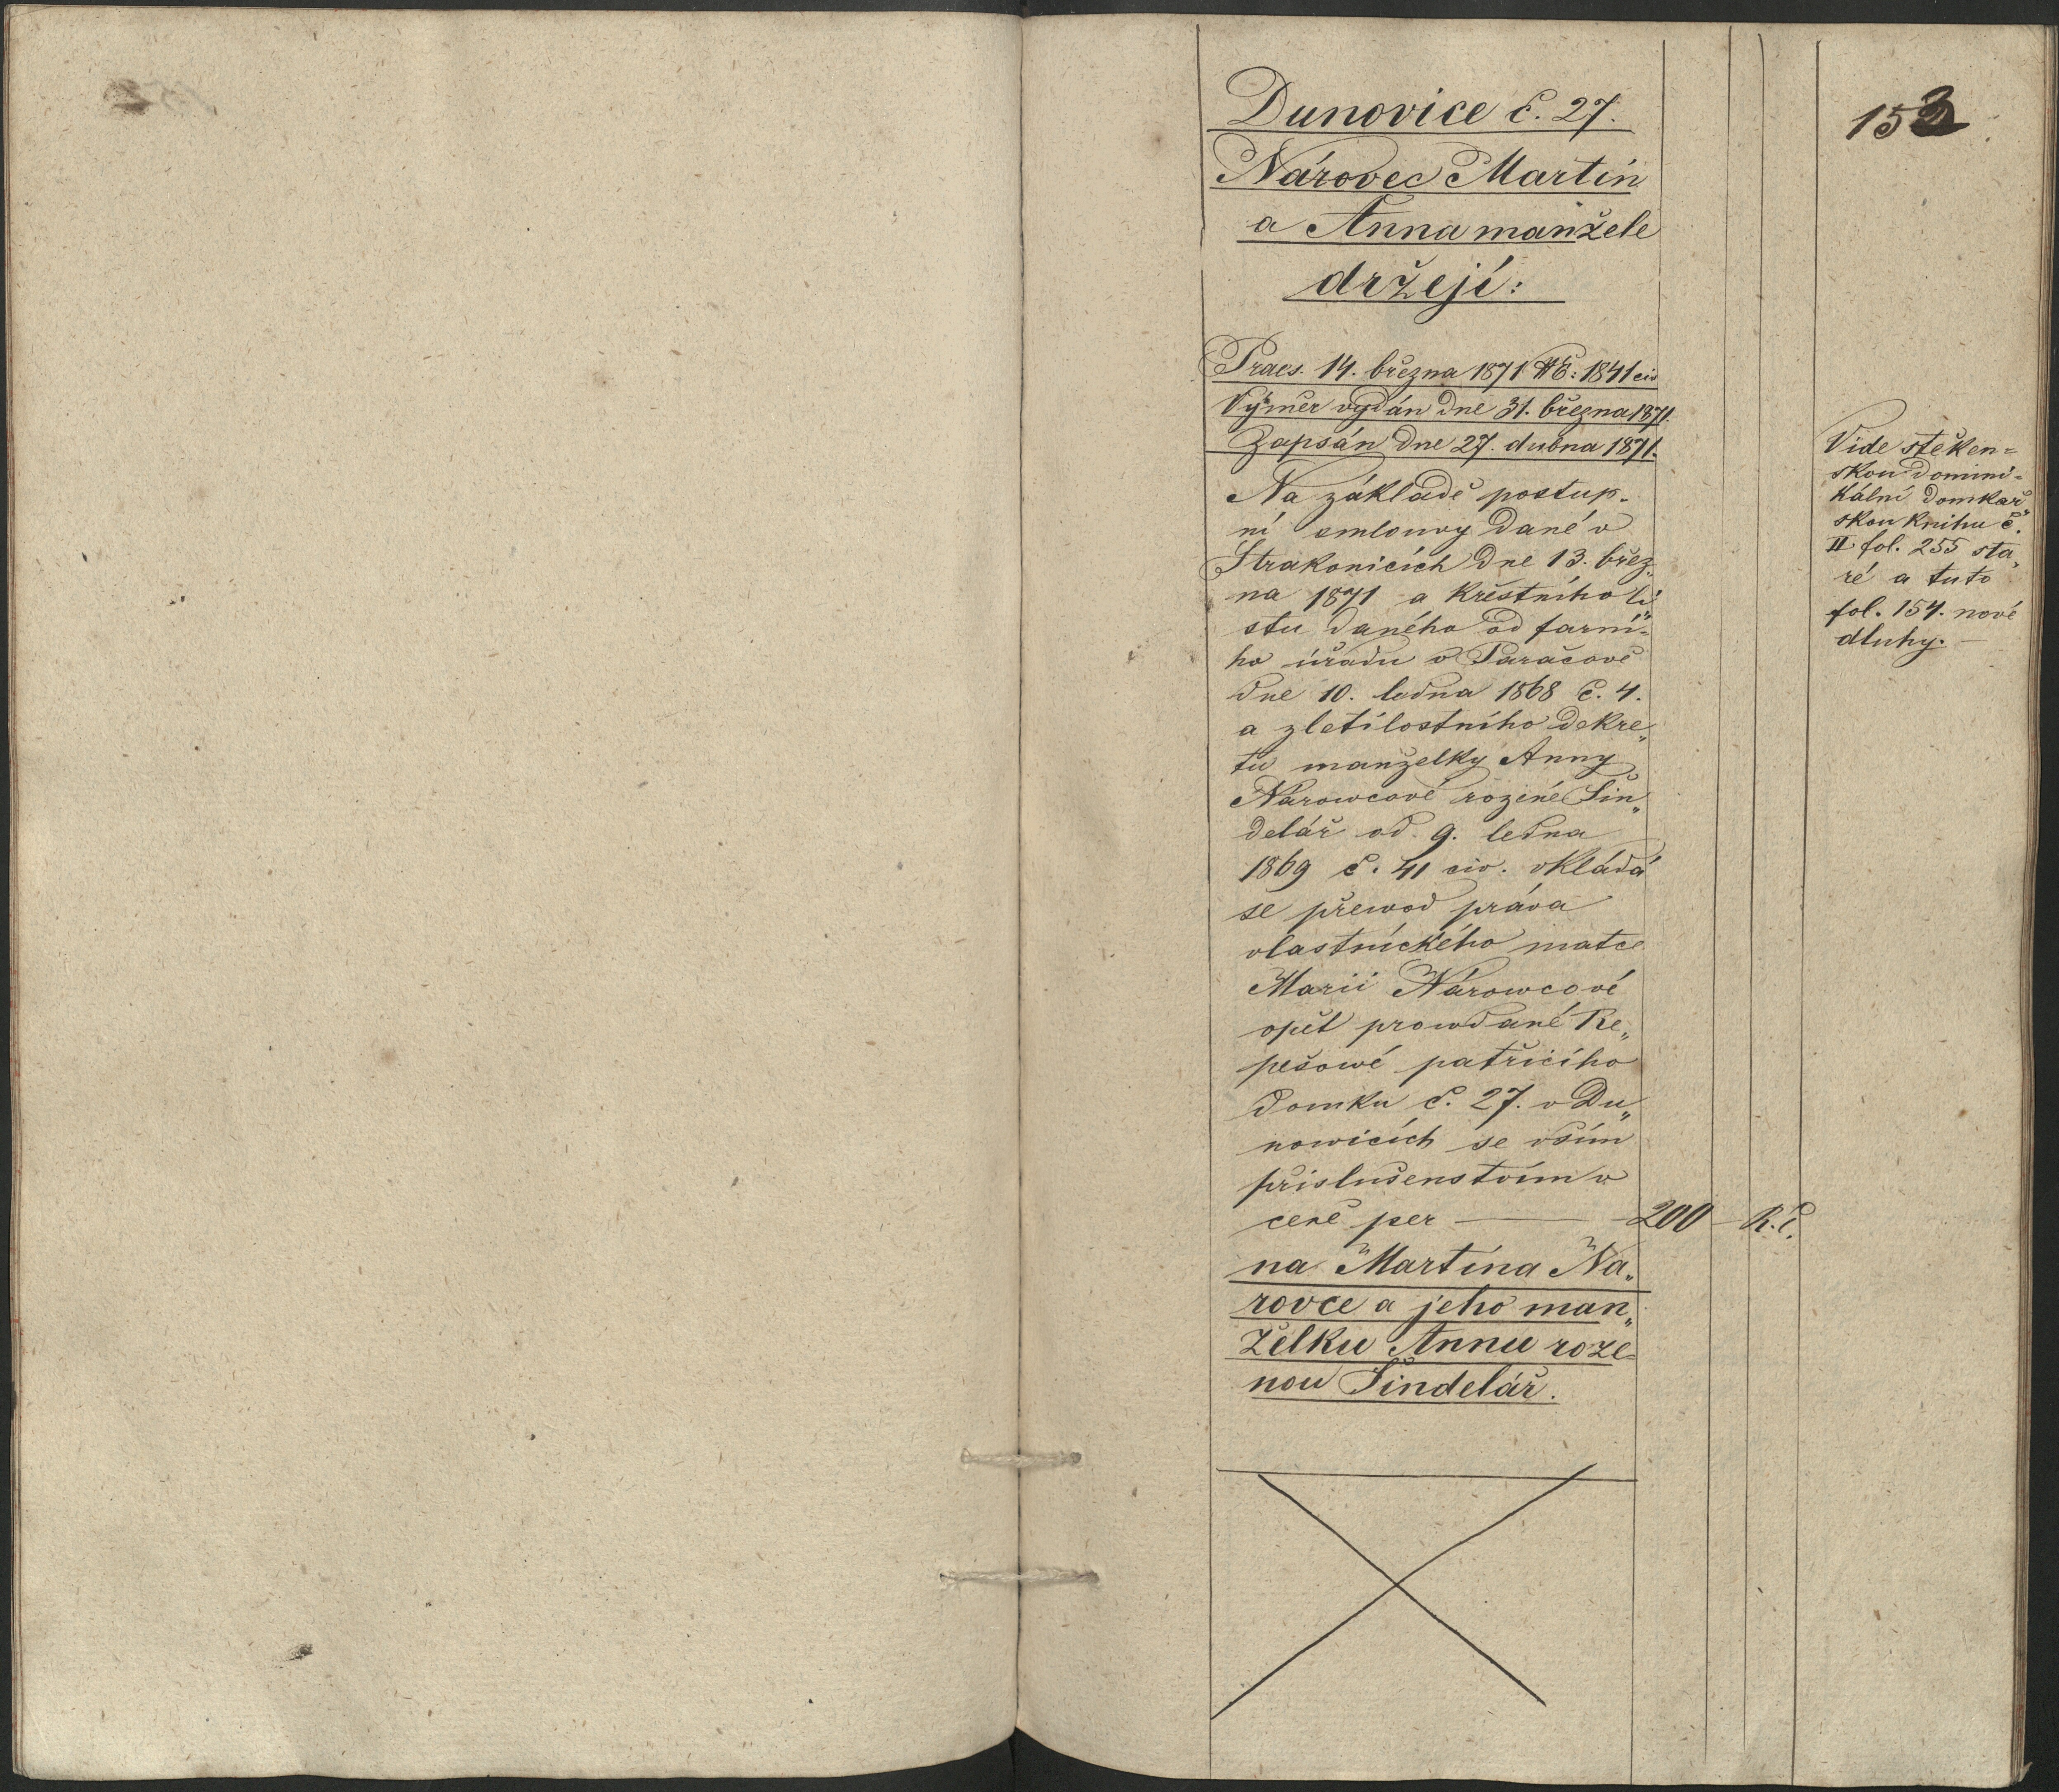 153
Dunovice č. 27.
Národec Martin
a Anna manžele
držejí:
Praes. 14. března 1871 NE: 1841 civ
Výměr vydán dne 31. března 1871.
Zapsán dne 27. dubna 1871.
Na základě postup-
ní smlouvy dané v
Strakonicích dne 13. břez„
na 1871 a křestního li„
stu daného od farní-
ho úřadu v Paračově
dne 10. ledna 1868 č. 4.
a zletilostního dekre„
tu manželky Anny
Narowcové rozené Šin„
delář od. 9. ledna
1869 č. 41 civ. vkládá
se přewod práva
vlastnického matce
Marii Nárowcové
opět prowdané Re„
pešowé patřicího
domku č. 27. v Du„
nowicích se vším
příslušenstvím v
ceně per — 200 — R.č.
na Martina Na„
rovce a jeho man„
želku Annu roze-
nou Šindelář.
Vide štěken-
skou domini-
kální domkař„
skou knihu č.
II. fol. 255 sta„
ré a tuto
fol. 154. nové
dluhy. —